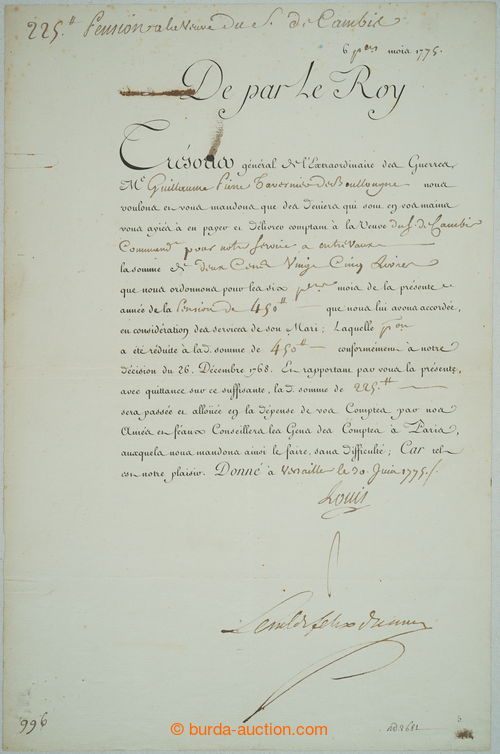 225.ᵗᵗ Pension a la Veuve du S. de Cambis
6 pers mois 1775.
De par Le Roy
Trésorier général de l'Extraordinaire des Guerres,
Mᵉ Guillaume Pierre Tavernier de Boullongne nous
voulons et vous mandons que des deniers qui sont en vos mains
vous ayiés à en payer et délivrer comptant à la Veuve du S. de Cambis
Commandᵗ pour notre service a entrevaux
la somme de deux Cent Vingt Cinq livres
que nous ordonnons pour les six pers mois de la présente
année de la Pension de 450ᵗᵗ que nous lui avons accordée,
en considération des services de son Mari; Laquelle pᵒⁿ
a été réduite à lad. somme de 450ᵗᵗ conformément à notre
décision du 26. Décembre 1768. En rapportant par vous la présente,
avec quittance sur ce suffisante, lad. somme de 225.ᵗᵗ
sera passée et allouée en la dépense de vos Comptes par nos
Amés et féaux Conseillers les Gens des Comptes à Paris,
auxquels nous mandons ainsi le faire, sans difficulté; Car tel
est notre plaisir. Donné à Versaille le 30 Juin 1775./.
Louis
996
© burda-auction.com